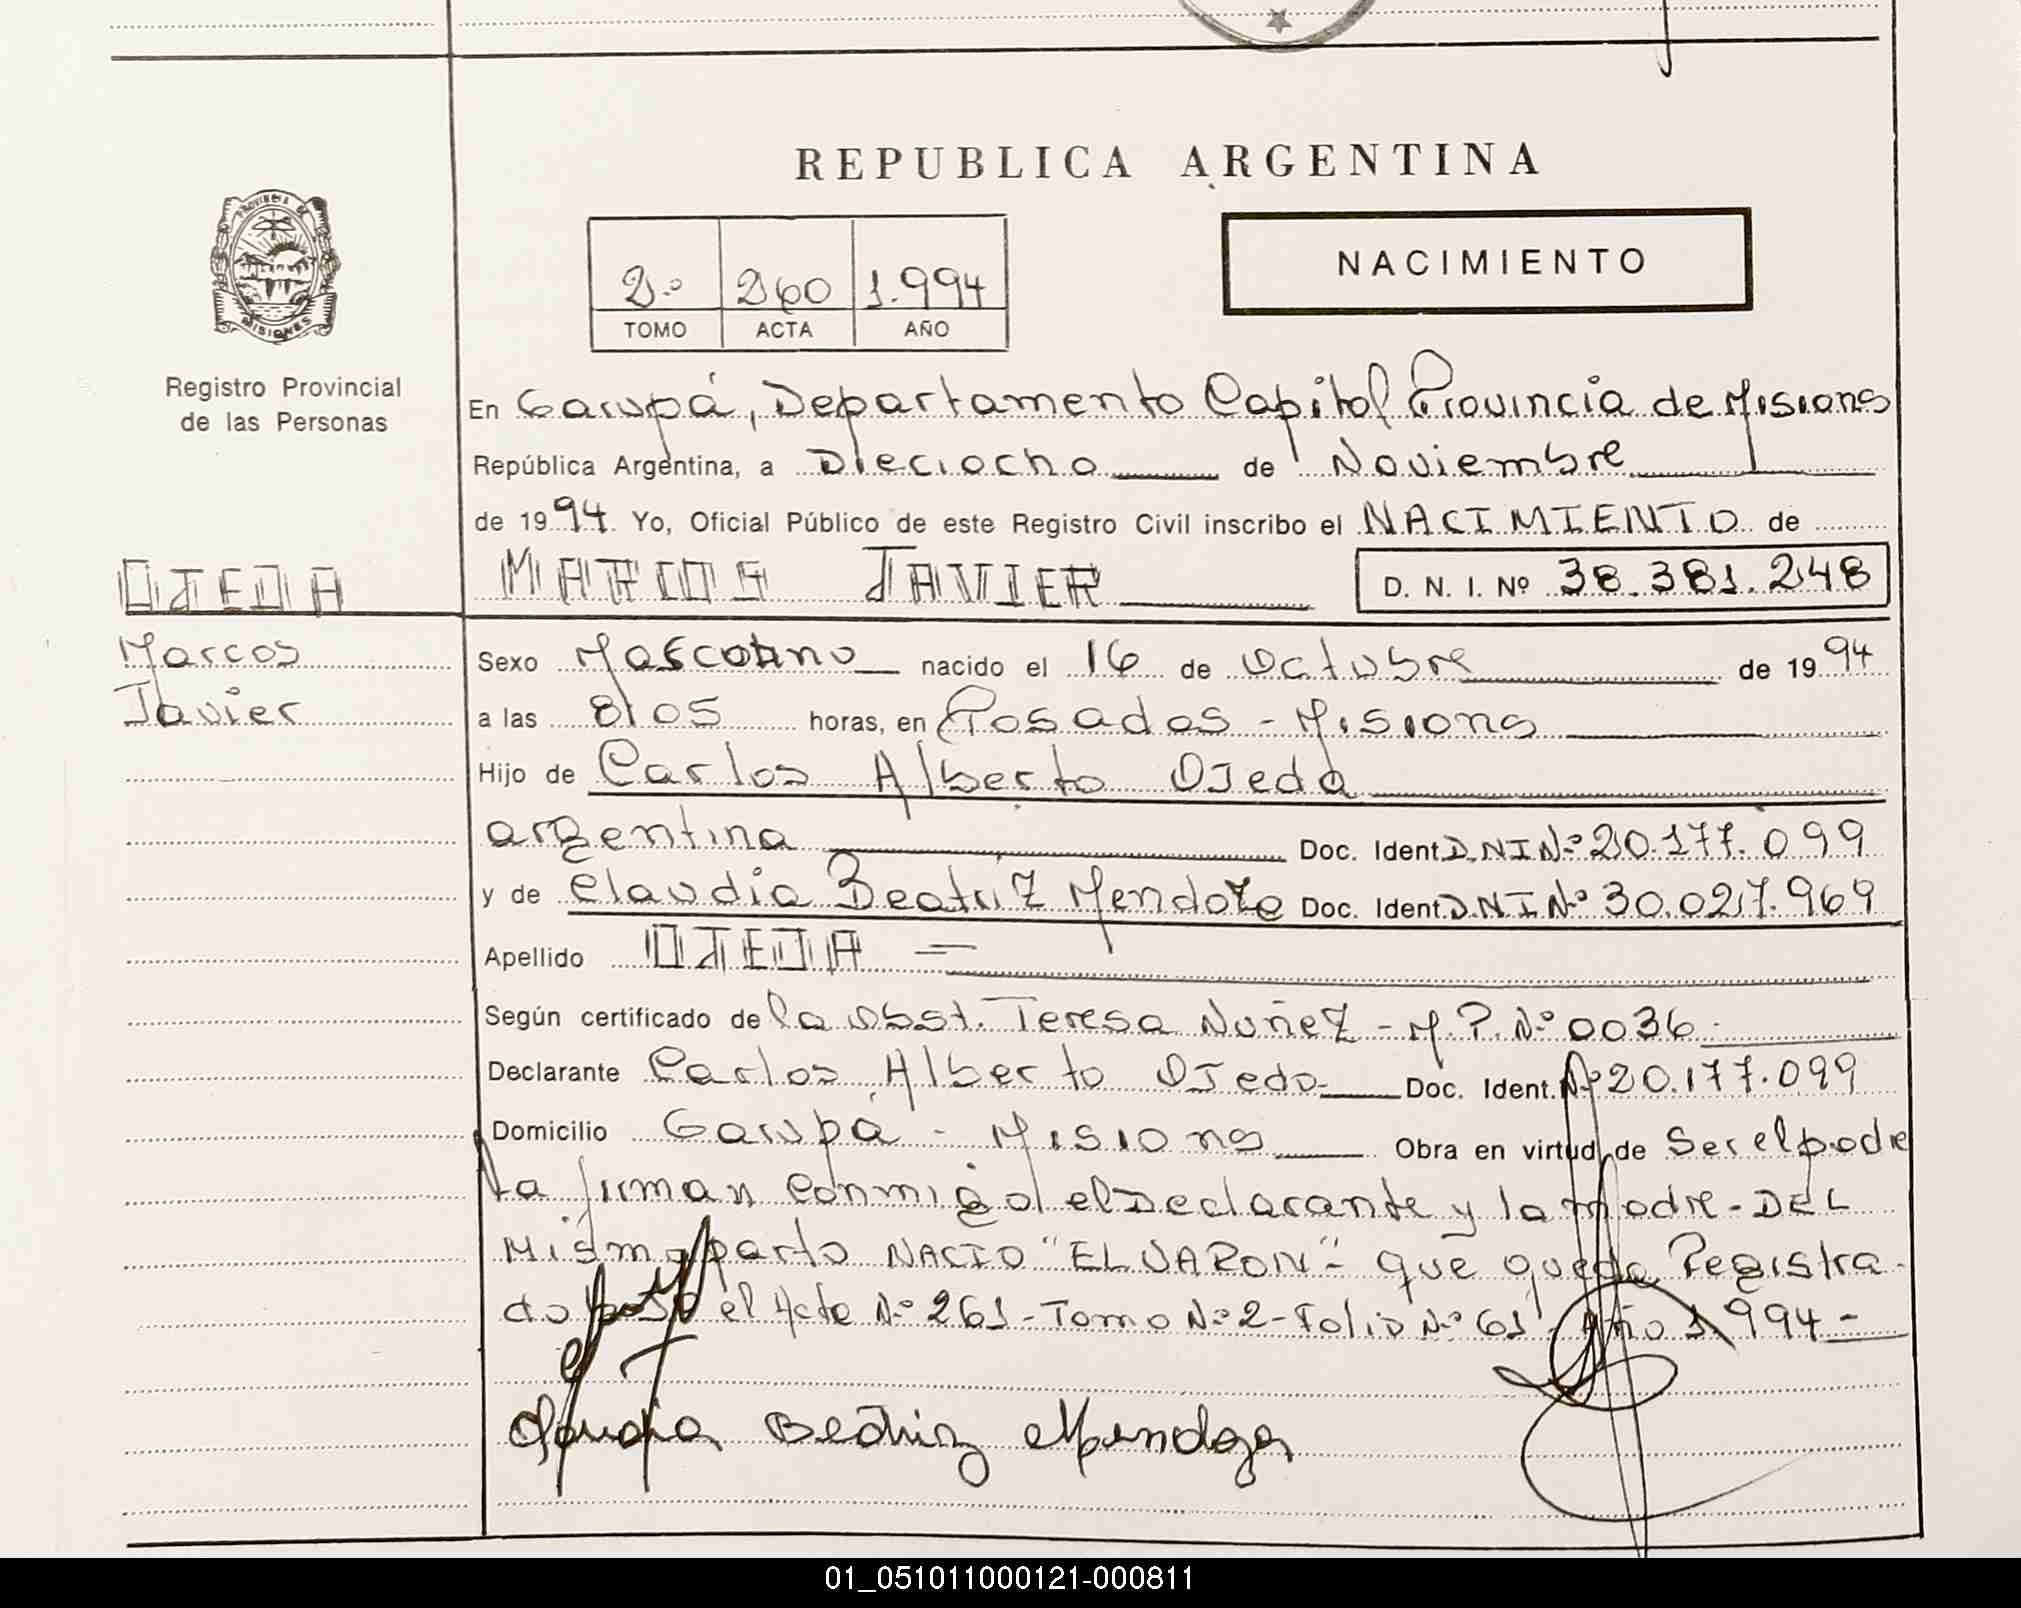 REPUBLICA ARGENTINA
PROVINCIA DE
MISIONES
Registro Provincial
de las Personas
2º 260 1.994
TOMO ACTA AÑO
NACIMIENTO
En Garupá, Departamento Capital Provincia de Misiones
República Argentina, a Dieciocho de Noviembre
de 1994 Yo, Oficial Público de este Registro Civil inscribo el NACIMIENTO de
OJEDA
MARCOS JAVIER D. N. I. Nº 38.381.248
Marcos
Javier
Sexo Masculino nacido el 16 de Octubre de 1994
a las 8/05 horas, en Posadas - Misiones
Hijo de Carlos Alberto Ojeda
argentina Doc. Ident. D.N.I Nº 20.177.099
y de Claudia Beatriz Mendoza Doc. Ident. D.N.I Nº 30.027.969
Apellido OJEDA =
Según certificado de la Obst. Teresa Nuñez - M.P. Nº 0036.
Declarante Carlos Alberto Ojeda Doc. Ident. Nº 20.177.099
Domicilio Garupá - Misiones Obra en virtud de Ser el padre
La firman conmigo el Declarante y la Madre - DEL
Mismo parto NACIO "EL VARON" - que queda Registra-
do bajo el Acta Nº 261 - Tomo Nº 2 - Folio Nº 61 Año 1.994 -
Claudia Beatriz Mendoza
01_051011000121-000811